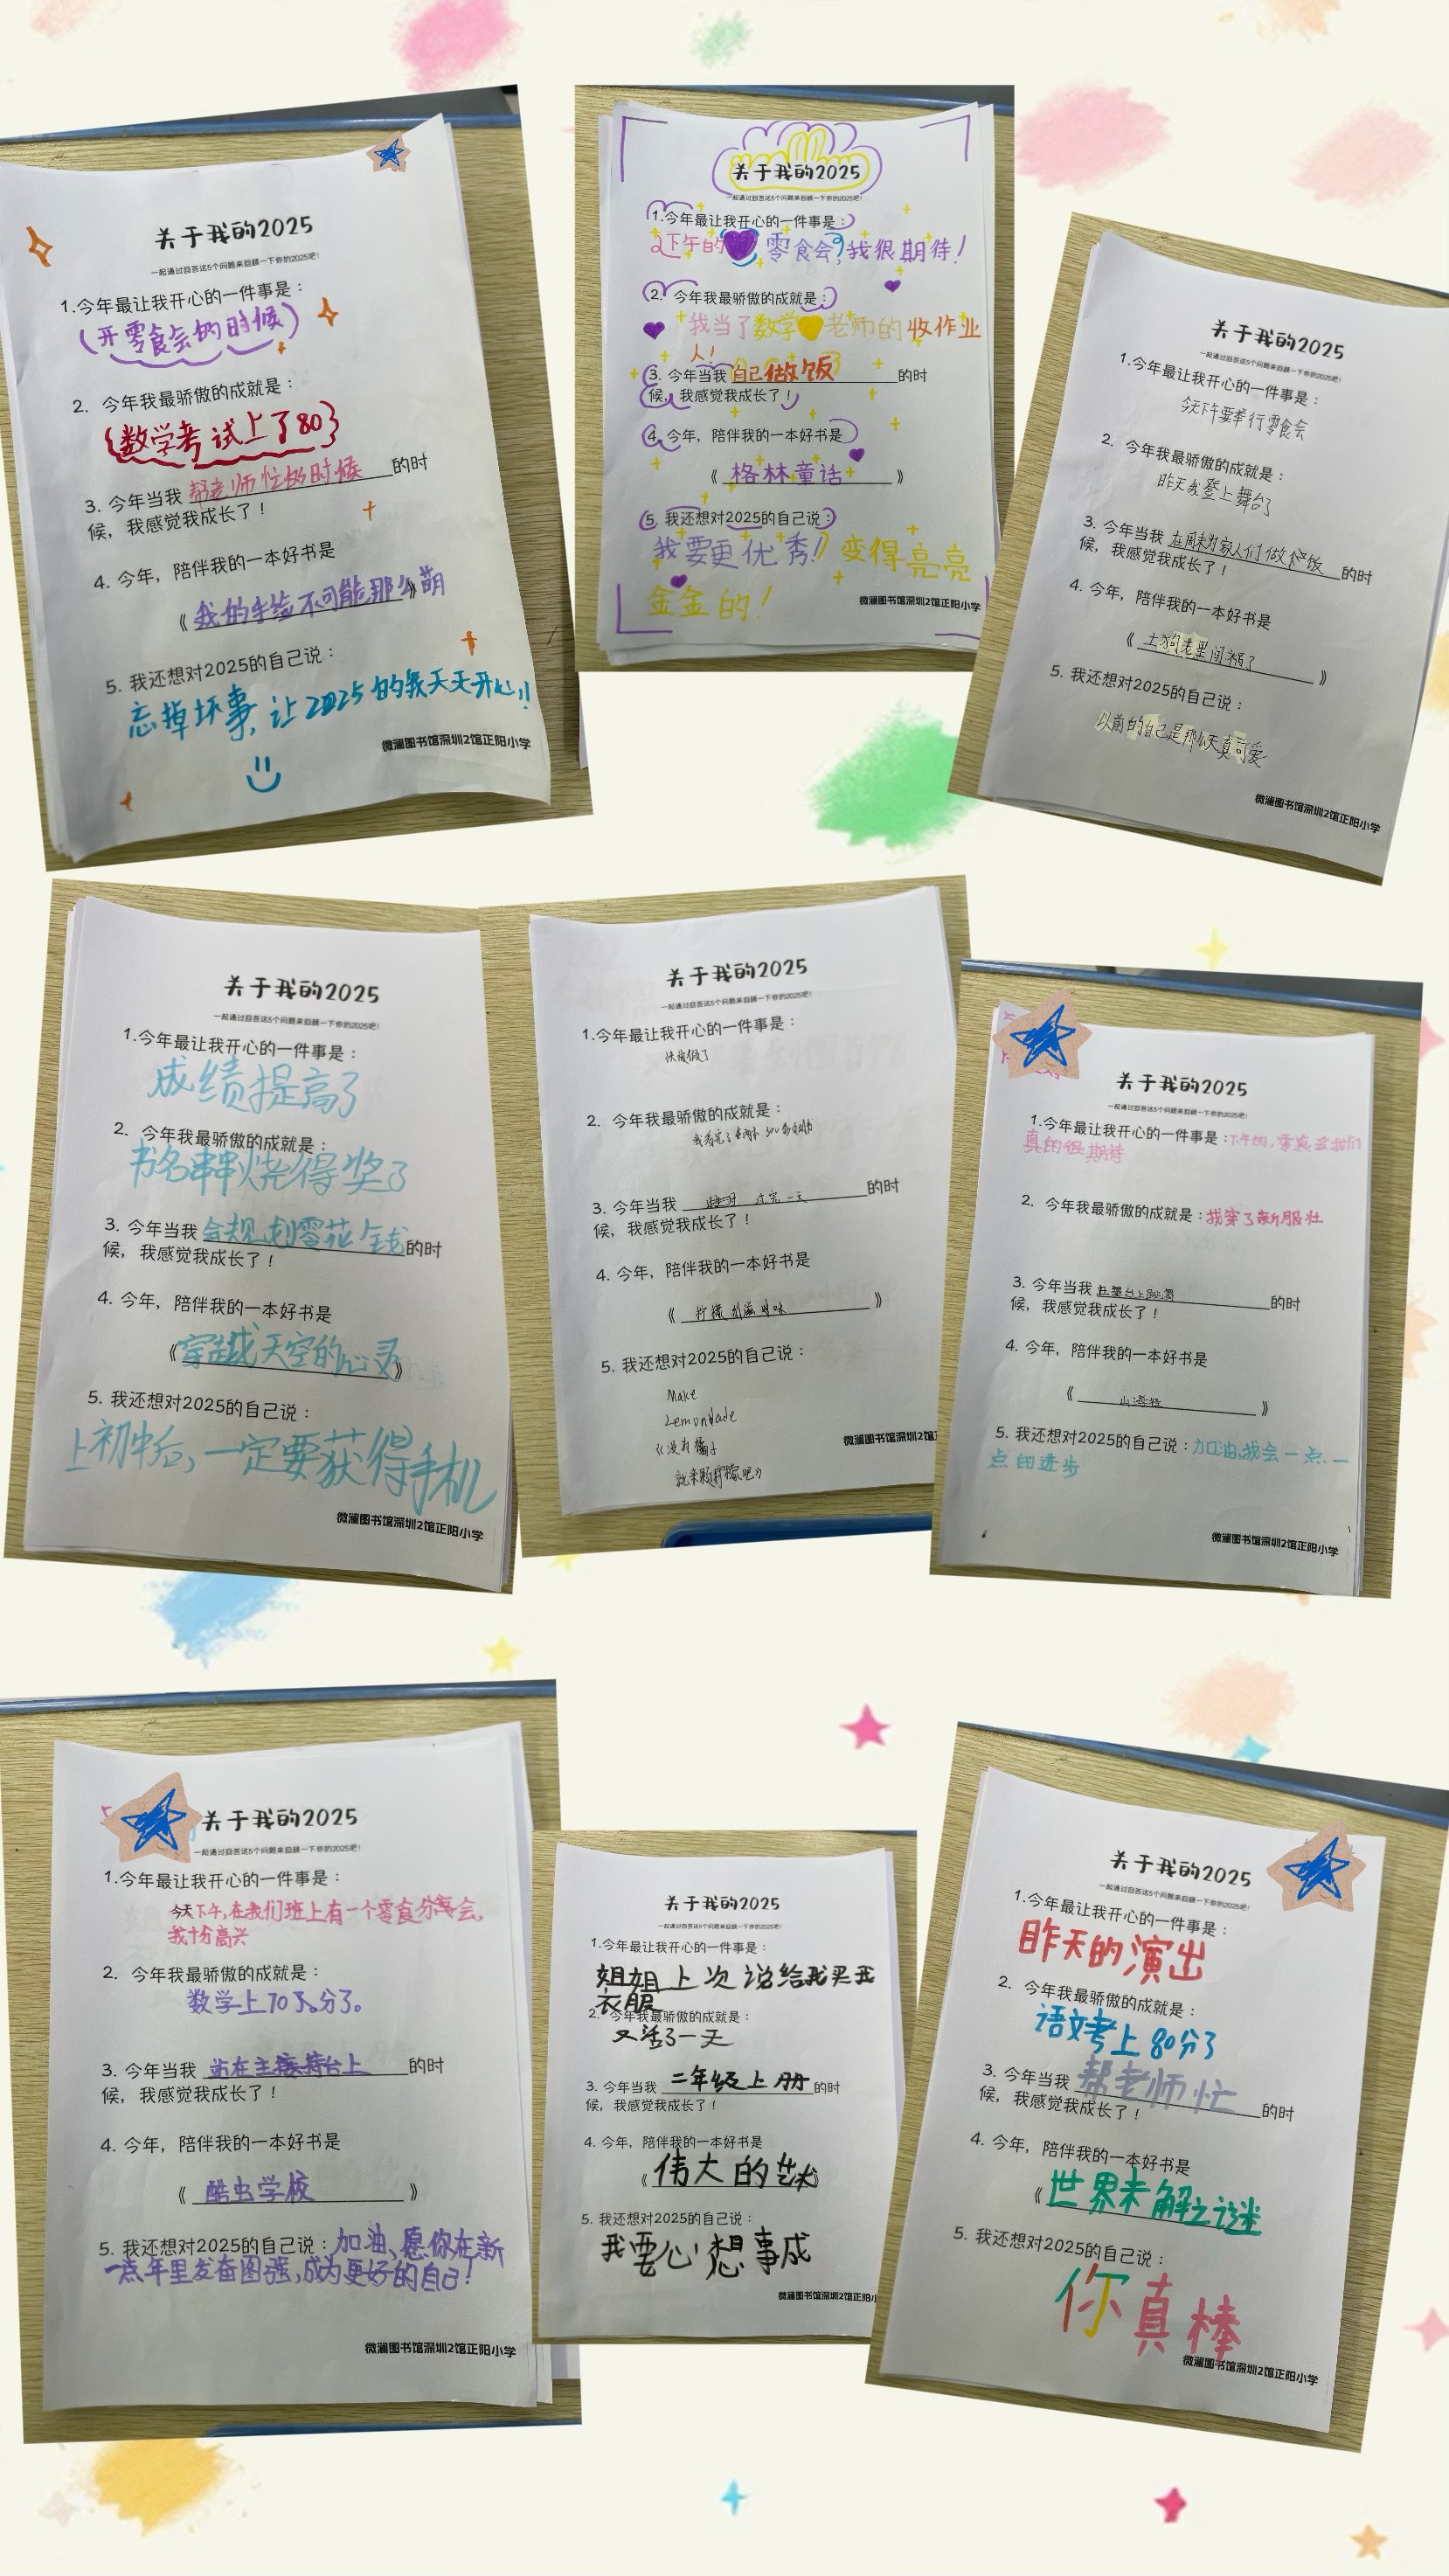 关于我的2025
一起通过回答这5个问题来回顾一下你的2025吧!
1.今年最让我开心的一件事是:
(开零食会的时候)
2. 今年我最骄傲的成就是:
{数学考试上了80}
3. 今年当我 帮老师忙的时候 的时
候，我感觉我成长了!
4. 今年，陪伴我的一本好书是
《 我的手绘不可能那么萌 》
5. 我还想对2025的自己说:
忘掉坏事，让2025的我天天开心!!
微澜图书馆深圳2馆正阳小学
关于我的2025
一起通过回答这5个问题来回顾一下你的2025吧!
1.今年最让我开心的一件事是:
下午的 零食会,我很期待!
2. 今年我最骄傲的成就是:
我当了数学 老师的收作业
人!
3. 今年当我 自己做饭 的时
候，我感觉我成长了!
4. 今年，陪伴我的一本好书是
《 格林童话 》
5. 我还想对2025的自己说:
我要更优秀!! 变得亮亮
金金的!
微澜图书馆深圳2馆正阳小学
关于我的2025
一起通过回答这5个问题来回顾一下你的2025吧!
1.今年最让我开心的一件事是:
今天下午要举行零食会
2. 今年我最骄傲的成就是:
昨天我登上舞台了
3. 今年当我 在周末为家人们做饭 的时
候，我感觉我成长了!
4. 今年，陪伴我的一本好书是
《 土狗老黑闯祸了 》
5. 我还想对2025的自己说:
以前的自己是那么天真可爱
微澜图书馆深圳2馆正阳小学
关于我的2025
一起通过回答这5个问题来回顾一下你的2025吧!
1.今年最让我开心的一件事是:
成绩提高了
2. 今年我最骄傲的成就是:
书名串串烧得奖了
3. 今年当我 会规划零花钱 的时
候，我感觉我成长了!
4. 今年，陪伴我的一本好书是
《穿越天空的心灵》
5. 我还想对2025的自己说:
上初中后，一定要获得手机
微澜图书馆深圳2馆正阳小学
关于我的2025
一起通过回答这5个问题来回顾一下你的2025吧!
1.今年最让我开心的一件事是:
快放假了
2. 今年我最骄傲的成就是:
我看完了 500多
3. 今年当我 过完一天 的时
候，我感觉我成长了!
4. 今年，陪伴我的一本好书是
《 柠檬 滋味 》
5. 我还想对2025的自己说:
Make
Lemonade
《没有橘子
就来颗柠檬吧》
微澜图书馆深圳2
关于我的2025
一起通过回答这5个问题来回顾一下你的2025吧!
1.今年最让我开心的一件事是:下午的,零食会我们
真的很期待
2. 今年我最骄傲的成就是:我穿了新服壮
3. 今年当我 在舞台上跳舞 的时
候，我感觉我成长了!
4. 今年，陪伴我的一本好书是
《 山海经 》
5. 我还想对2025的自己说:加油,我会一点、一
点的进步
微澜图书馆深圳2馆正阳小学
关于我的2025
一起通过回答这5个问题来回顾一下你的2025吧!
1.今年最让我开心的一件事是:
今天下午,在我们班上有一个零食分享会,
我十分高兴
2. 今年我最骄傲的成就是:
数学上70了。分了。
3. 今年当我 站在主持台上 的时
候，我感觉我成长了!
4. 今年，陪伴我的一本好书是
《 酷虫学校 》
5. 我还想对2025的自己说:加油、愿你在新
一年里发奋图强,成为更好的自己!
微澜图书馆深圳2馆正阳小学
关于我的2025
一起通过回答这5个问题来回顾一下你的2025吧!
1.今年最让我开心的一件事是:
姐姐上次说给我买买
衣服
2. 今年我最骄傲的成就是:
又活了一天
3. 今年当我 二年级上册 的时
候，我感觉我成长了!
4. 今年，陪伴我的一本好书是
《伟大的艺术》
5. 我还想对2025的自己说:
我要心想事成
微澜图书馆深圳2馆正阳小
关于我的2025
一起通过回答这5个问题来回顾一下你的2025吧!
1.今年最让我开心的一件事是:
昨天的演出
2. 今年我最骄傲的成就是:
语文考上80分了
3. 今年当我 帮老师忙 的时
候，我感觉我成长了!
4. 今年，陪伴我的一本好书是
《世界未解之谜
5. 我还想对2025的自己说:
你真棒
微澜图书馆深圳2馆正阳小学